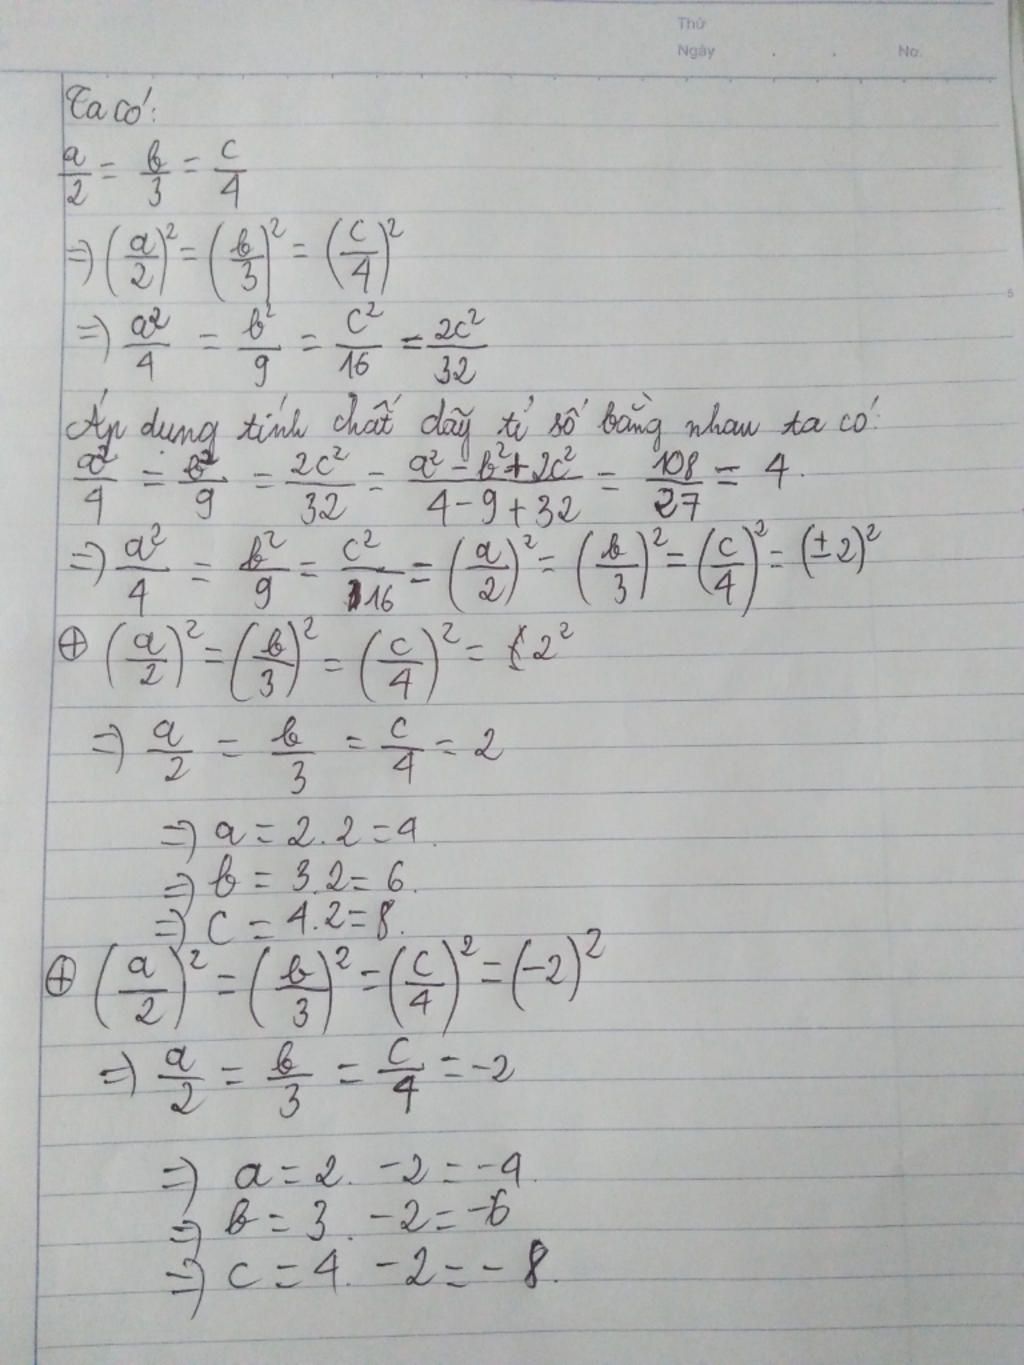 Thứ
Ngày . . No.
Ta có:
a/2 = b/3 = c/4
=> (a/2)² = (b/3)² = (c/4)²
=> a²/4 = b²/9 = c²/16 = 2c²/32
Áp dụng tính chất dãy tỉ số bằng nhau ta có:
a²/4 = b²/9 = 2c²/32 = (a² - b² + 2c²)/(4 - 9 + 32) = 108/27 = 4.
=> a²/4 = b²/9 = c²/16 = (a/2)² = (b/3)² = (c/4)² = (±2)²
⊕ (a/2)² = (b/3)² = (c/4)² = 2²
=> a/2 = b/3 = c/4 = 2
=> a = 2.2 = 4.
=> b = 3.2 = 6.
=> c = 4.2 = 8.
⊕ (a/2)² = (b/3)² = (c/4)² = (-2)²
=> a/2 = b/3 = c/4 = -2
=> a = 2. -2 = -4.
=> b = 3. -2 = -6
=> c = 4. -2 = -8.